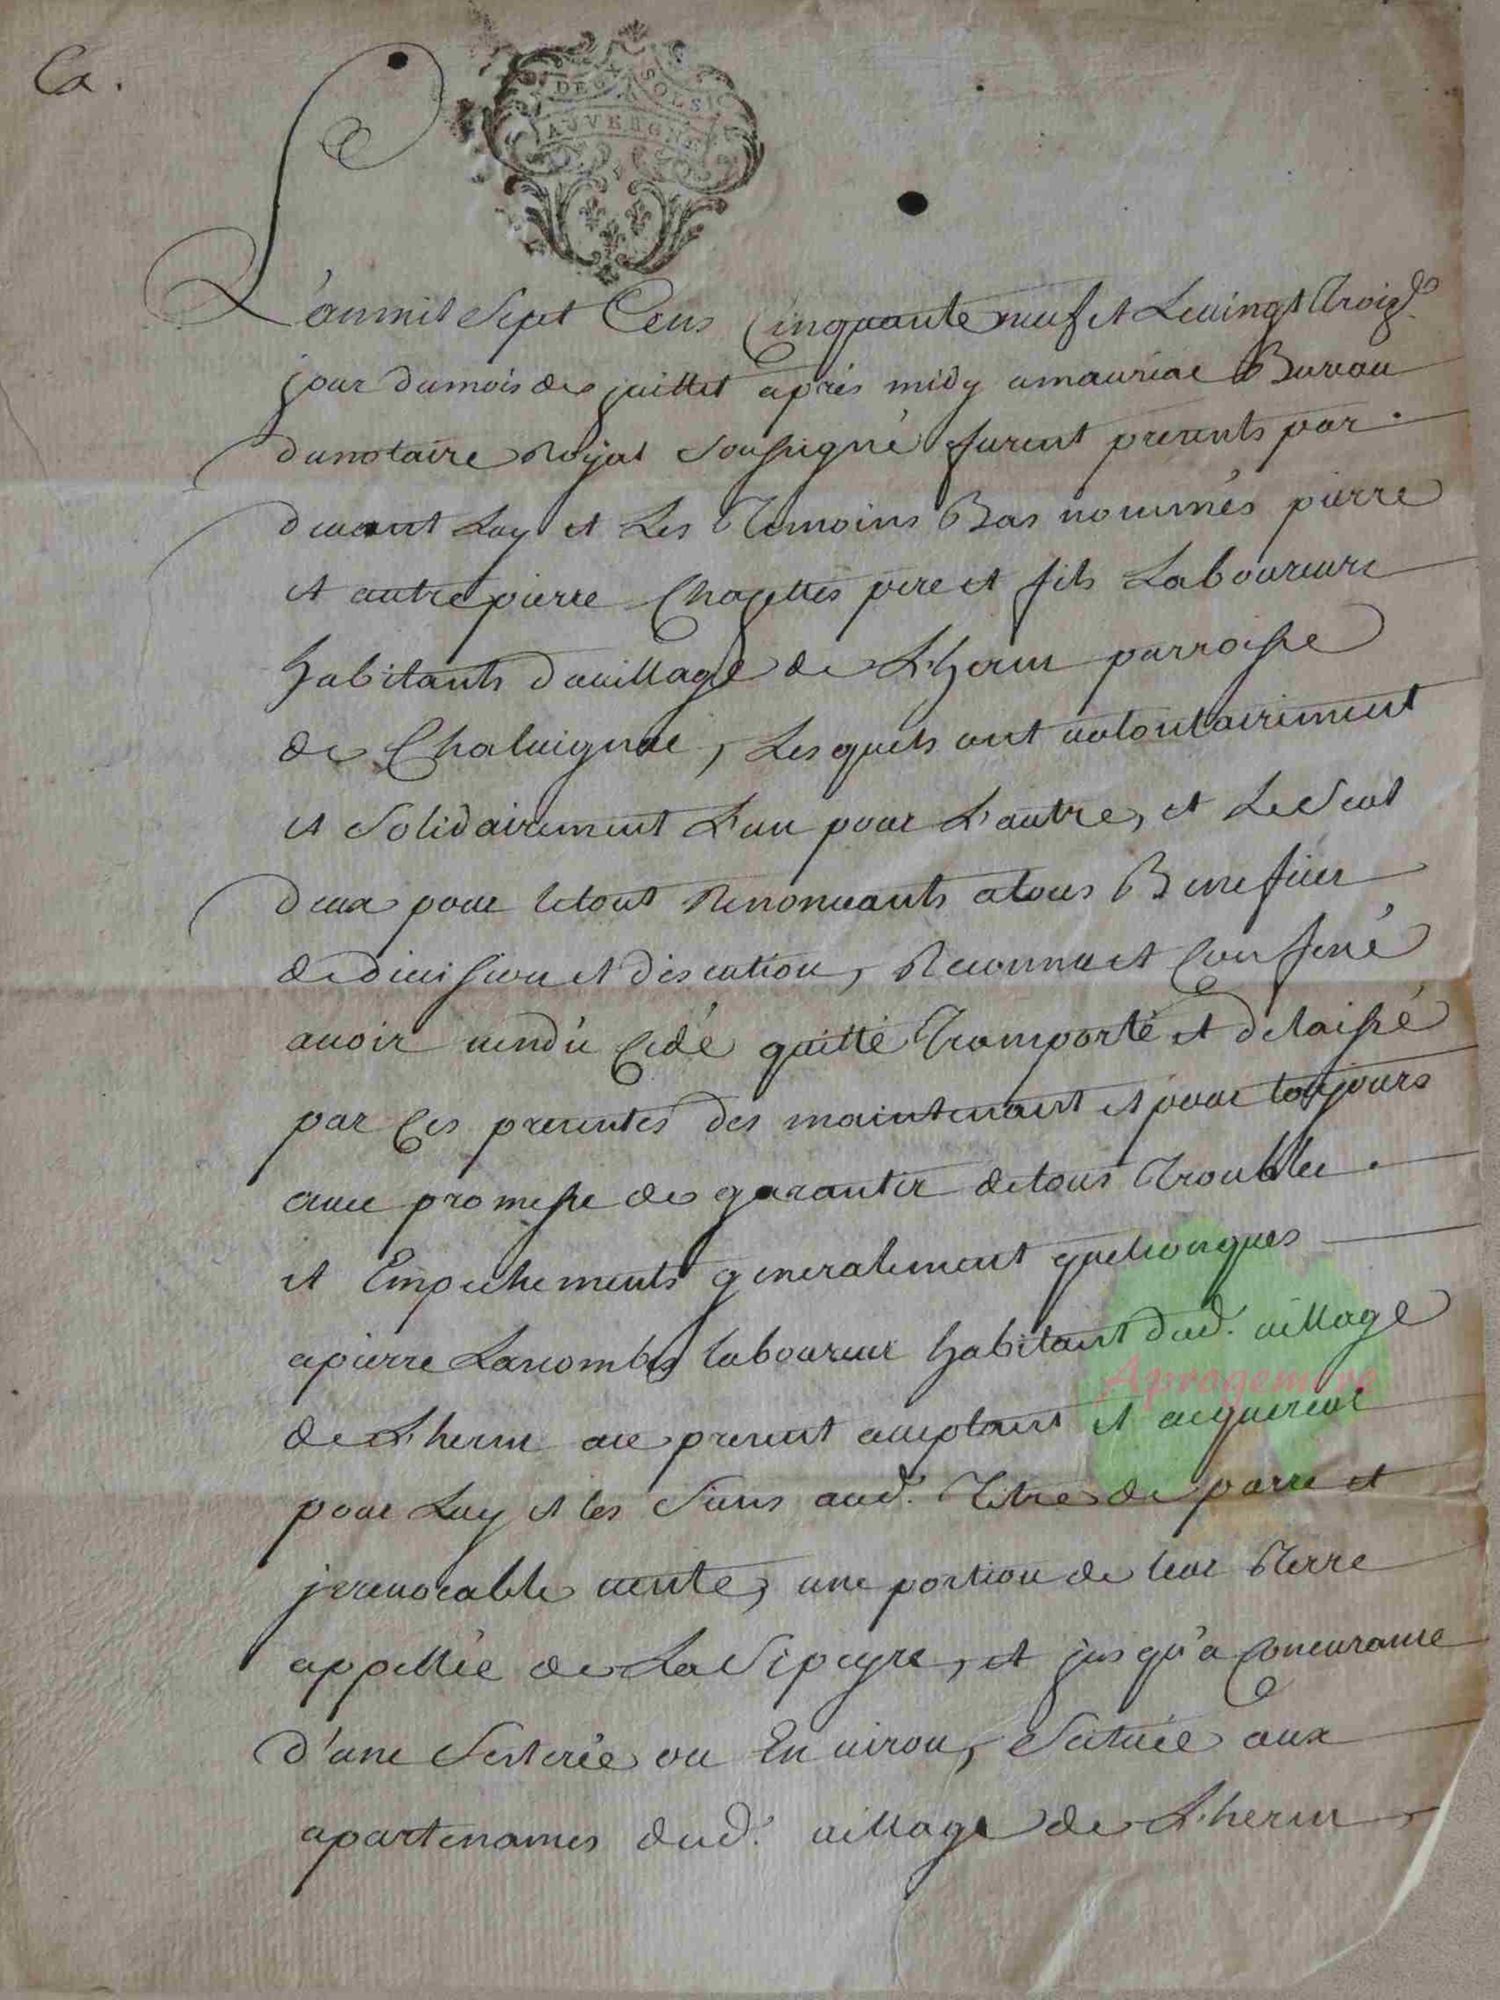 Ca.
DEUX SOLS
AUVERGNE
L'an mil Sept Cens Cinquante neuf et Le vingt Troize
jour du mois de juillet apres midy a mauriac Bureau
du notaire Royal Soussigné furent presents par
devant Luy et Les Temoins Bas nommés pierre
et autre pierre Chapettes pere et fils Laboureurs
habitants du village de L'herm parroisse
de Chalvignac, Lesquels ont volontairement
et Solidairement L'un pour L'autre, et Le Seul
deux pour le tout Renonceants a tous Benefices
de division et discution, Reconnu et Confessé
avoir vendu Cedé quitté Transporté et delaissé
par Ces presentes des maintenant et pour toujours
avec promesse de garantir de tous Troubles
et Empechements generalement quelconques
a pierre Lacombe laboureur habitant dud. village
de L'herm ace present acceptant et acquereur
pour Luy et les Siens aud. Titre de pure et
jrrevocable vente, une portion de leur Terre
appellée de La Sipeyre, et jusqu'a Concurance
d'une Seterée ou Environ, Scituée aux
apartenances dud. village de L'herm
Aprogemere